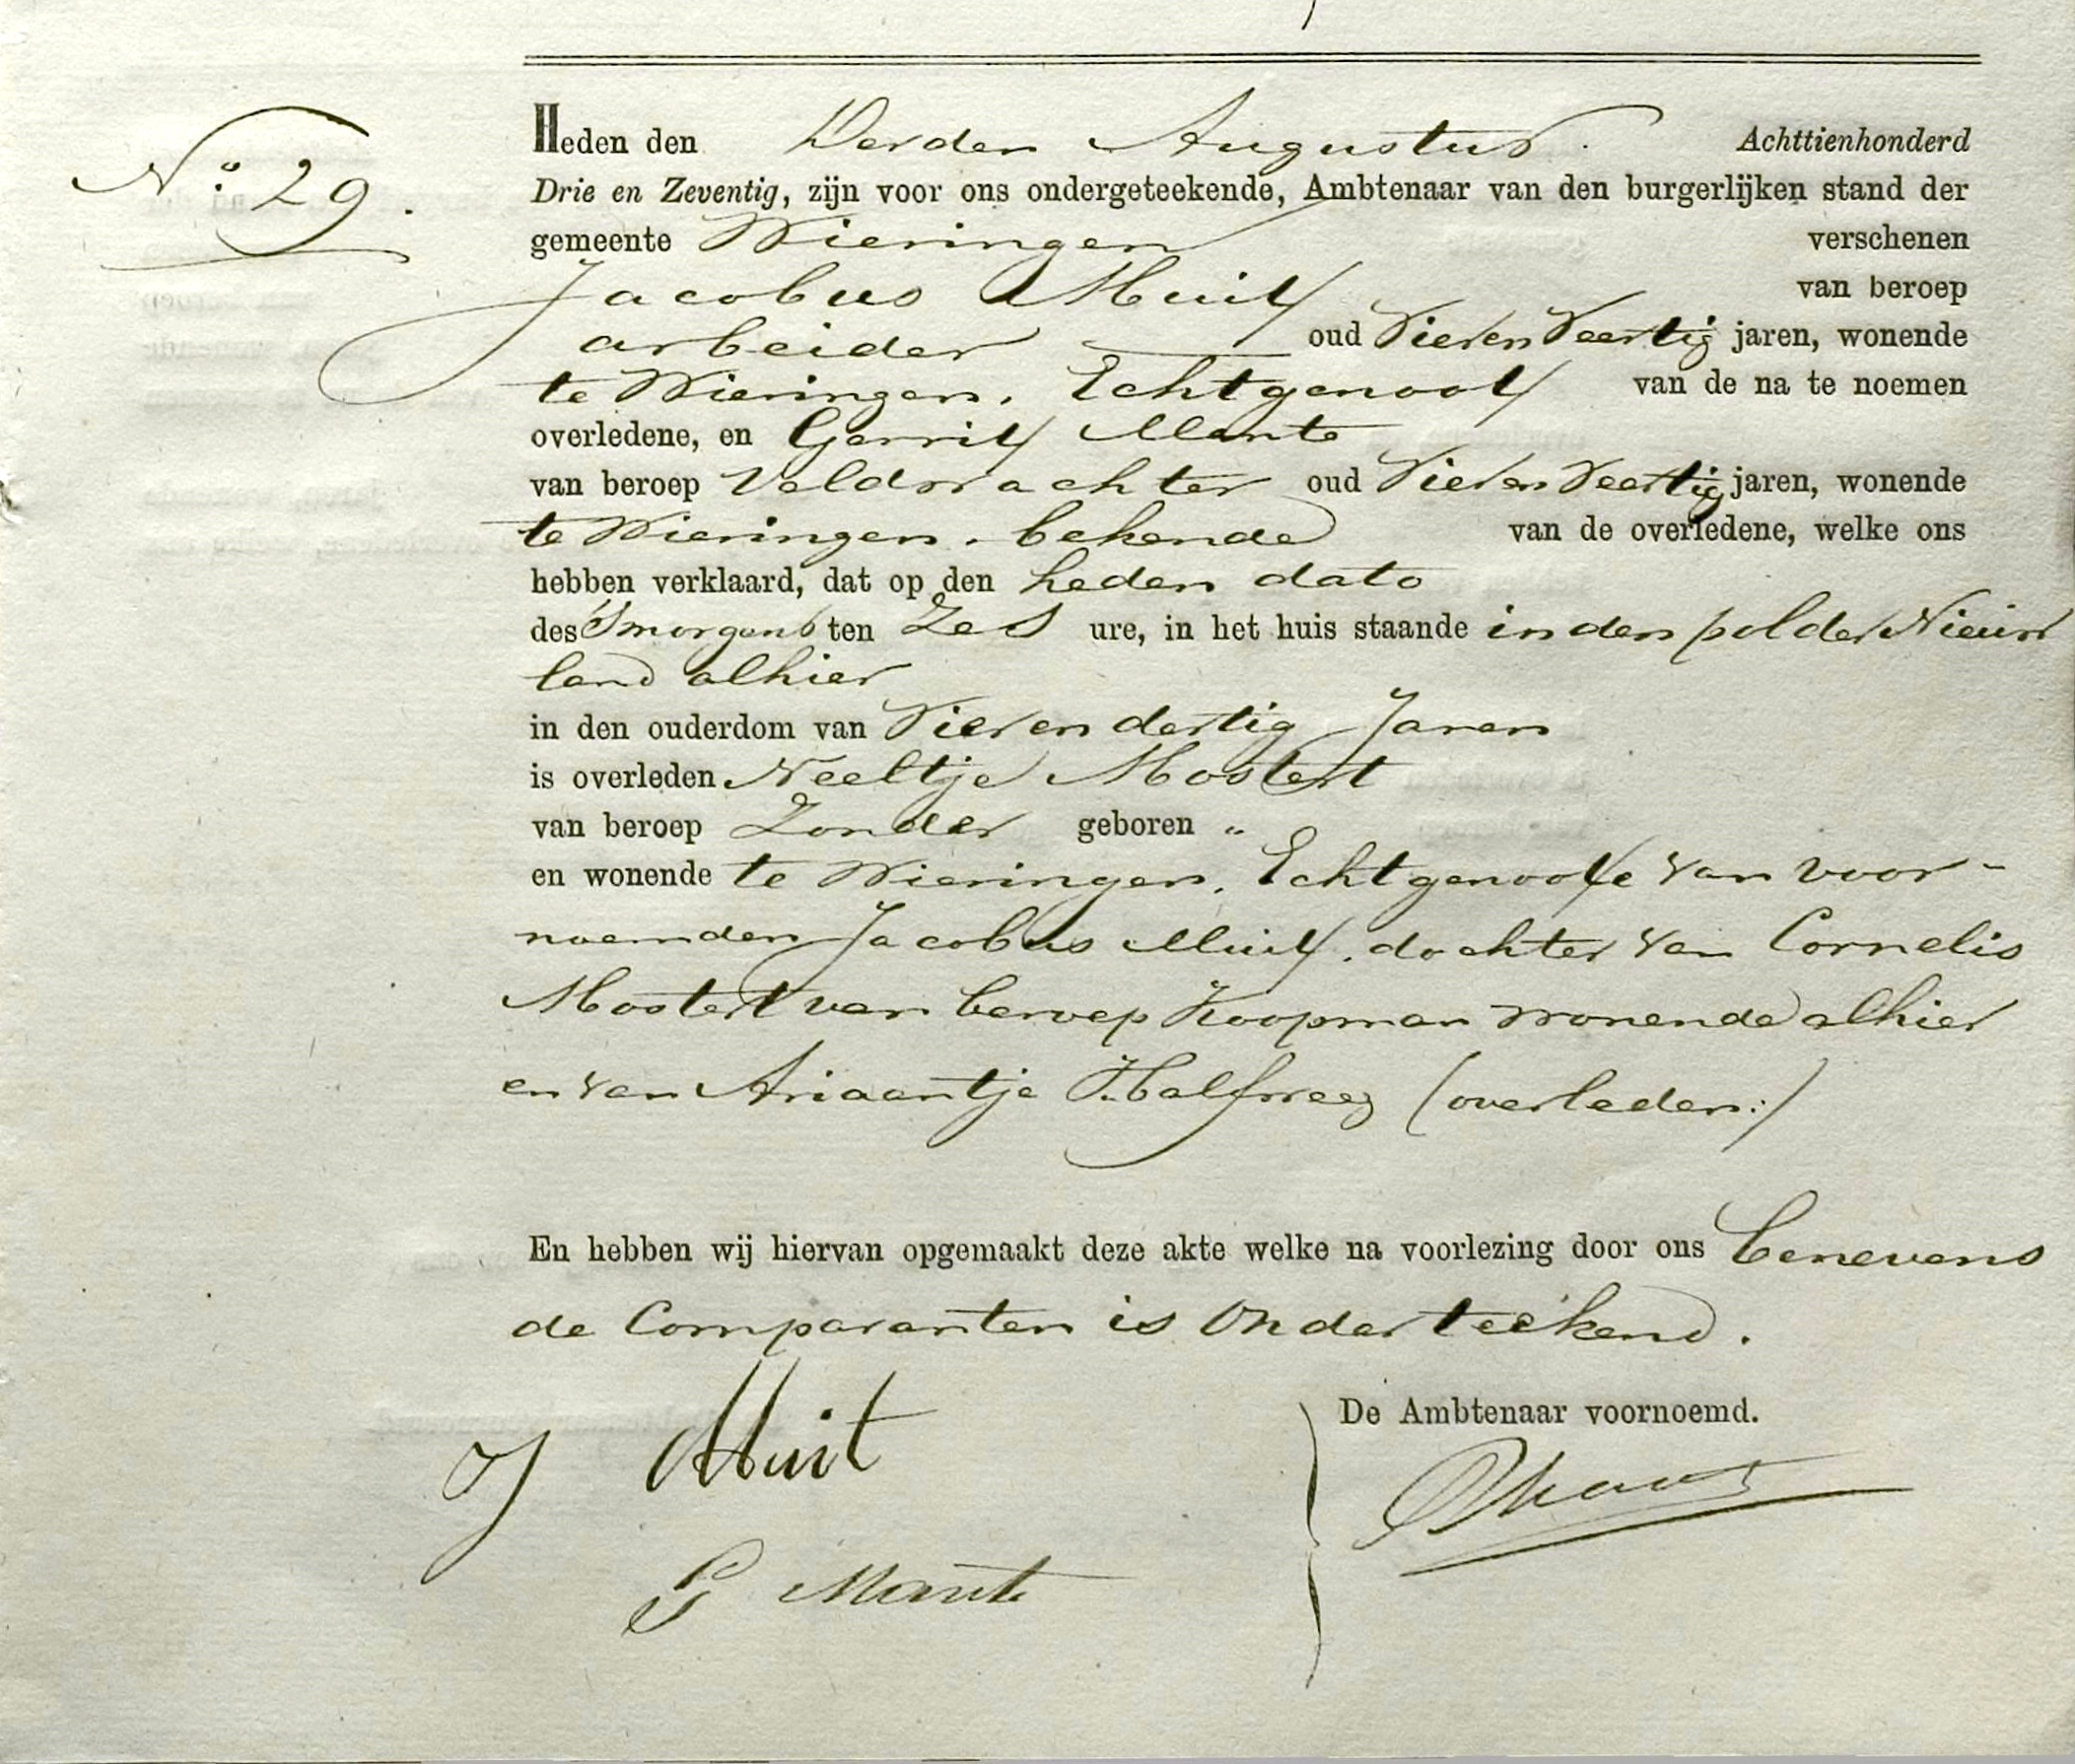 No. 29.
Heden den Derden Augustus. Achttienhonderd
Drie en Zeventig, zijn voor ons ondergeteekende, Ambtenaar van den burgerlijken stand der
gemeente Wieringen verschenen
Jacobus Muit van beroep
arbeider oud Vier en Veertig jaren, wonende
te Wieringen, Echtgenoot van de na te noemen
overledene, en Gerrit Mante
van beroep Veldwachter oud Vier en Veertig jaren, wonende
te Wieringen, bekende van de overledene, welke ons
hebben verklaard, dat op den heden dato
des Smorgens ten Zes ure, in het huis staande in den polder Nieuw
land alhier
in den ouderdom van Vier en dertig Jaren
is overleden Neeltje Mostert
van beroep Zonder geboren "
en wonende te Wieringen, Echtgenoote van voor-
noemden Jacobus Muit, dochter van Cornelis
Mostert van beroep Koopman wonende alhier
en van Ariaantje Halfweeg (overleden:)
En hebben wij hiervan opgemaakt deze akte welke na voorlezing door ons benevens
de Comparanten is Onderteekend.
De Ambtenaar voornoemd.
J Muit
G Mante